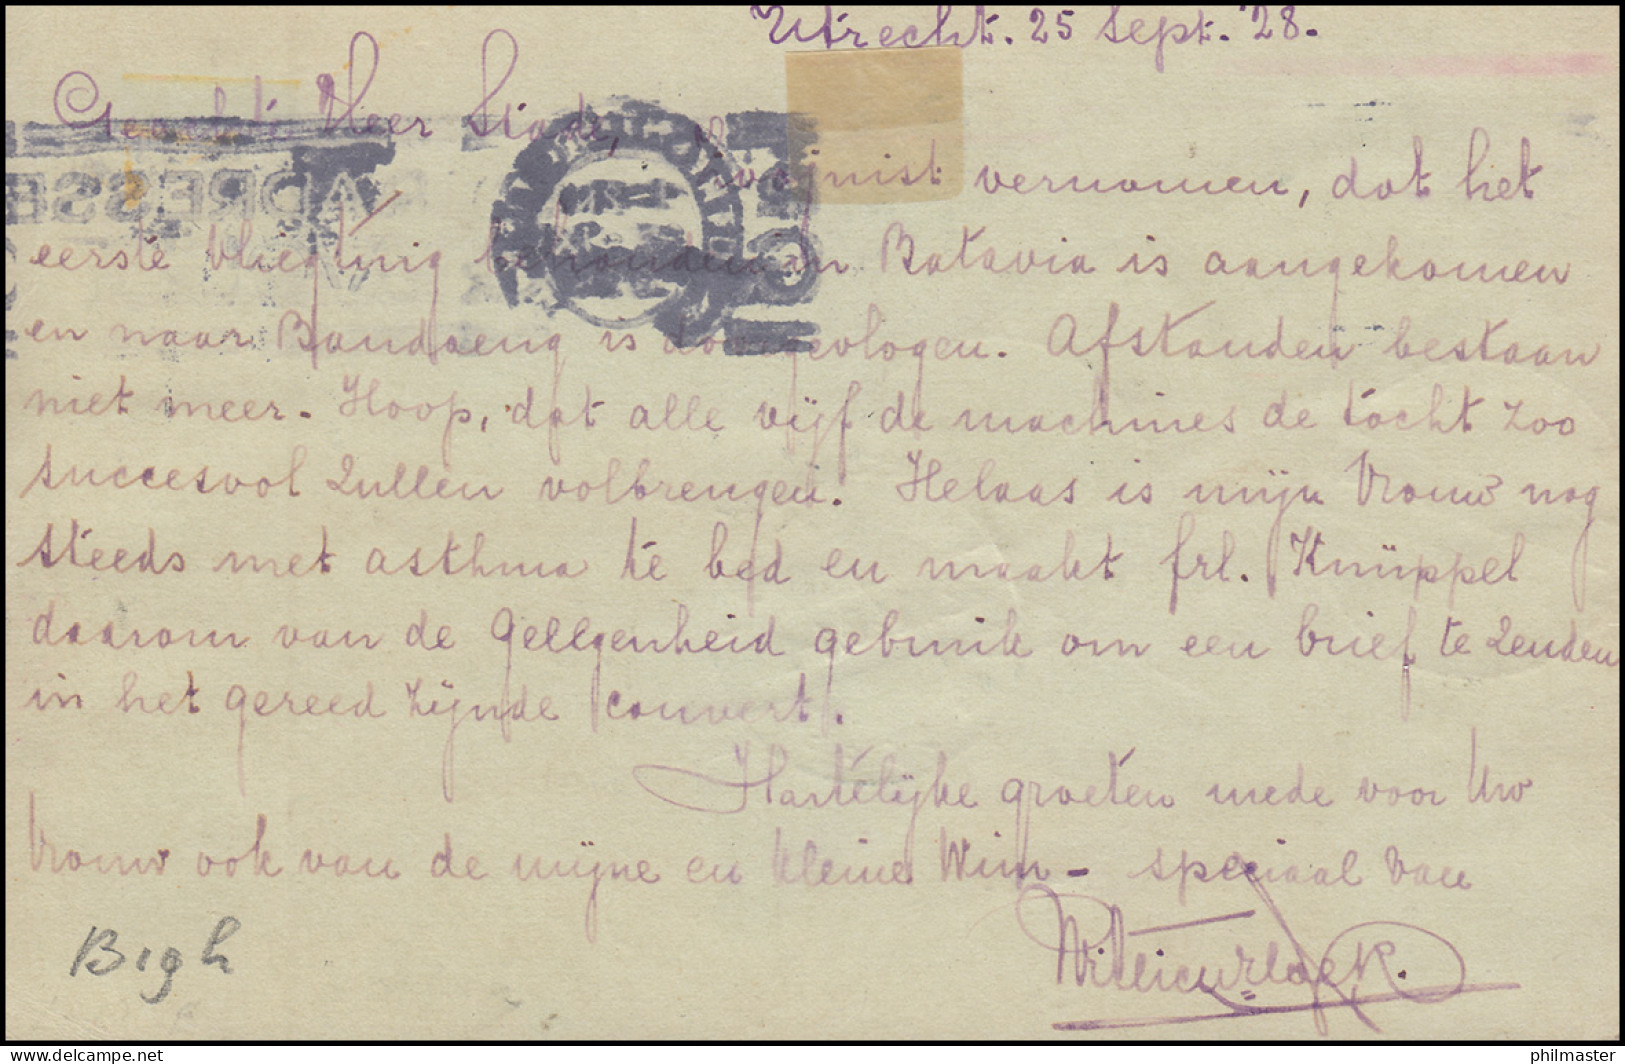 Utrecht. 25 Sept. '28.
Geachte Heer Stade,
vernomen, dat het
eerste vliegtuig behouden in Batavia is aangekomen
en naar Bandoeng is doorgevlogen. Afstanden bestaan
niet meer. Hoop, dat alle vijf de machines de tocht zoo
succesvol zullen volbrengen. Helaas is mijn vrouw nog
steeds met asthma te bed en maakt frl. Knüppel
daarom van de gelegenheid gebruik om een brief te zenden
in het gereed zijnde couvert.
Hartelijke groeten mede voor Uw
vrouw ook van de mijne en kleine Wim - speciaal van
Bigh
ADRESSE
philmaster